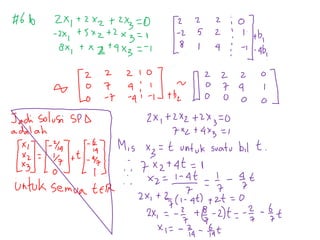 #6b 2x₁+2x₂+2x₃=0
-2x₁+5x₂+2x₃=1
8x₁+x₂+4x₃=-1
[2 2 2 | 0
-2 5 2 | 1
8 1 4 | -1] +b₁ -4b₁
~ [2 2 2 | 0
0 7 4 | 1
0 -7 -4 | -1] +b₂
~ [2 2 2 0
0 7 4 1
0 0 0 0]
Jadi solusi SPD
adalah
[x₁ x₂ x₃] = [-2/14 1/7 0] + t [-6/14 -4/7 1]
untuk semua t∈R
2x₁+2x₂+2x₃=0
7x₂+4x₃=1
Mis x₃=t untuk suatu bil t.
∴ 7x₂+4t=1
∴ x₂ = 1-4t/7 = 1/7 - 4/7 t
2x₁+2/7(1-4t)+2t=0
2x₁ = -2/7 + (8/7-2)t = -2/7 - 6/7 t
x₁ = -2/14 - 6/14 t